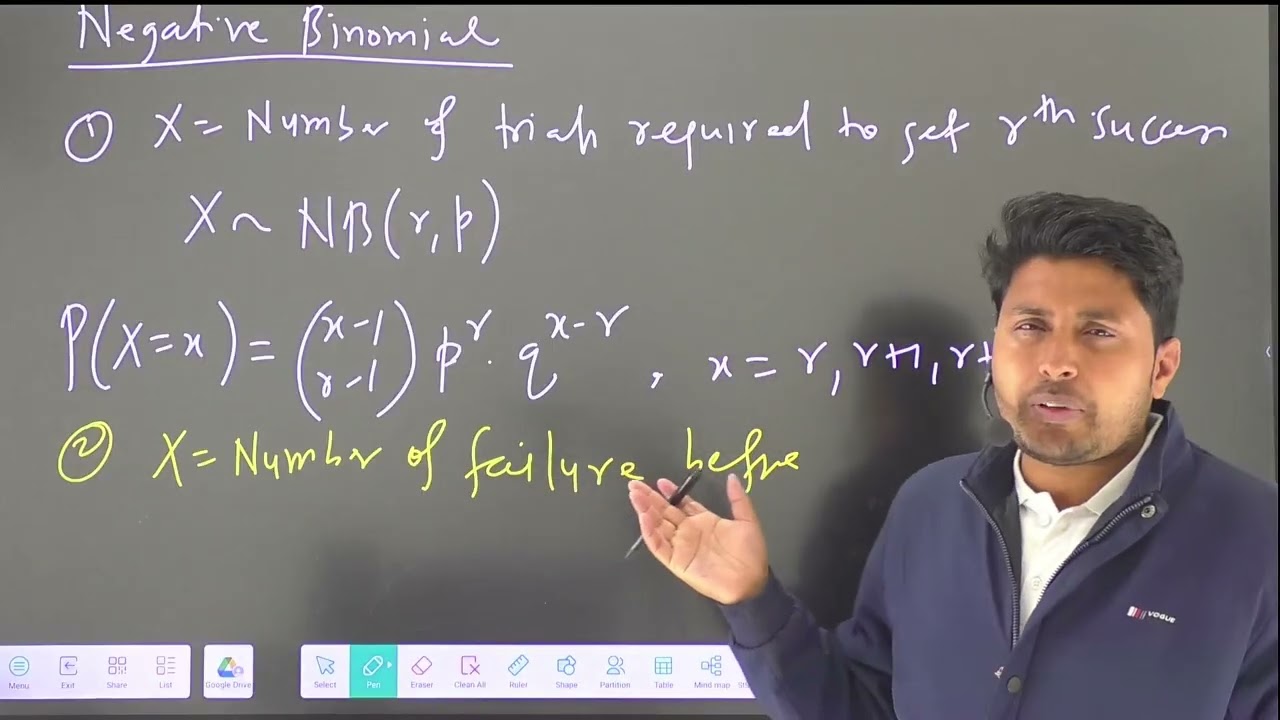 Negative Binomial
① X = Number of trials required to get rth success
X ~ NB(r, p)
P(X=x) = (x-1 r-1) p^r · q^x-r , x = r, r+1, r+
② X = Number of failure before
VOGUE
Menu Exit Share List Google Drive Select Pen Eraser Clean All Ruler Shape Partition Table Mind map